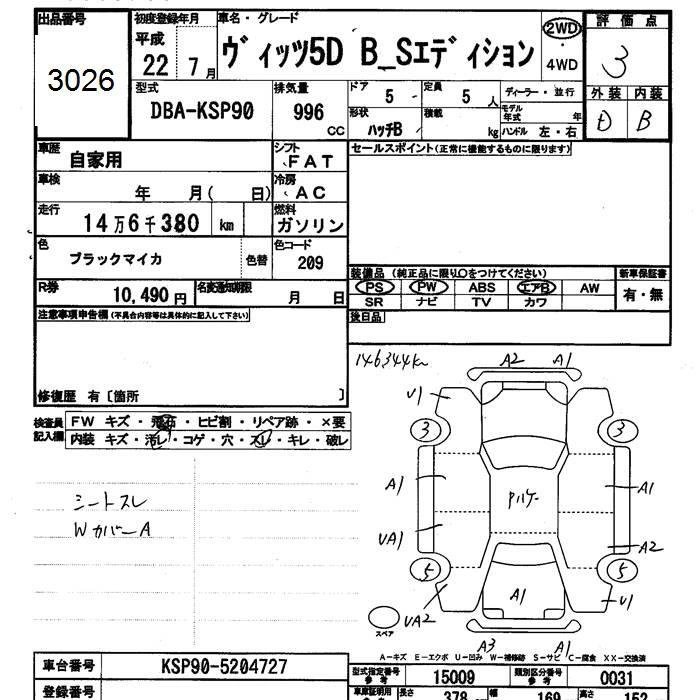 出品番号
3026
初度登録年月
平成
22 7月
車名・グレード
ヴィッツ5D B_Sエディション
2WD
・
4WD
評価点
3
外装 内装
D B
型式
DBA-KSP90
排気量
996
CC
ドア
5
定員
5 人
ディーラー・並行
形状
ハッチB
積載
kg
モデル年式
年
ハンドル 左・右
車歴
自家用
シフト
FAT
セールスポイント(正常に機能するものに限ります)
車検
年 月( 日)
冷房
AC
走行
14万6千380 km
燃料
ガソリン
色
ブラックマイカ
色替
色コード
209
装備品 (純正品に限り○をつけてください)
新車保証書
PS PW ABS エアB AW
有・無
SR ナビ TV カワ
R券
10,490円
名変通知期限
月 日
注意事項申告欄(不具合内容等は具体的に記入して下さい)
後日品
修復歴 有〔箇所 〕
検査員
記入欄
FW キズ・飛石・ヒビ割・リペア跡・×要
内装 キズ・汚レ・コゲ・穴・スレ・キレ・破レ
146344km
A2 A1
V1
3 3
A1 A1
UA1 A2
5 5
UA2 A1 V1
スペア
A3 A1
シートスレ
WカバーA
A-キズ E-エクボ U-凹み W-補修跡 S-サビ C-腐食 XX-交換済
車台番号
KSP90-5204727
型式指定番号
参考
15009
類別区分番号
参考
0031
登録番号
車庫証明用
長さ
378
幅
169
高さ
152